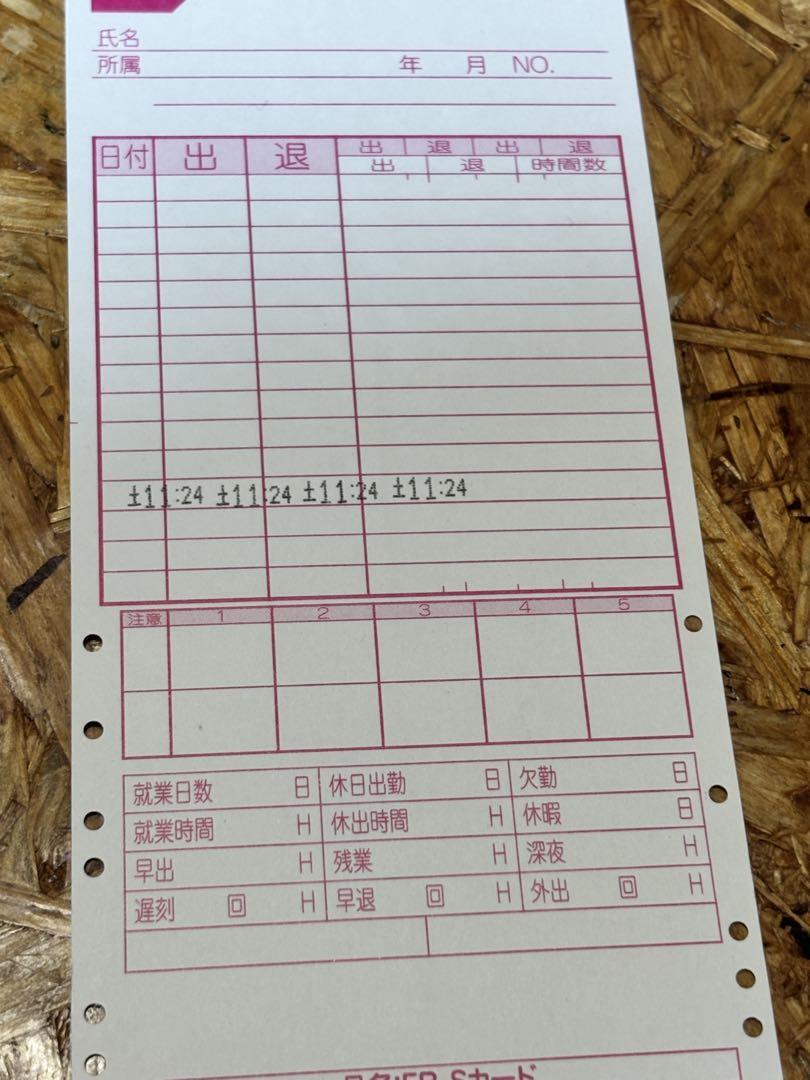 氏名
所属 年 月 NO.
日付 出 退 出 退 出 退
出 退 時間数
土11:24 土11:24 土11:24 土11:24
注意 1 2 3 4 5
就業日数 日 休日出勤 日 欠勤 日
就業時間 H 休出時間 H 休暇 日
早出 H 残業 H 深夜 H
遅刻 回 H 早退 回 H 外出 回 H
品名:ER-Sカード